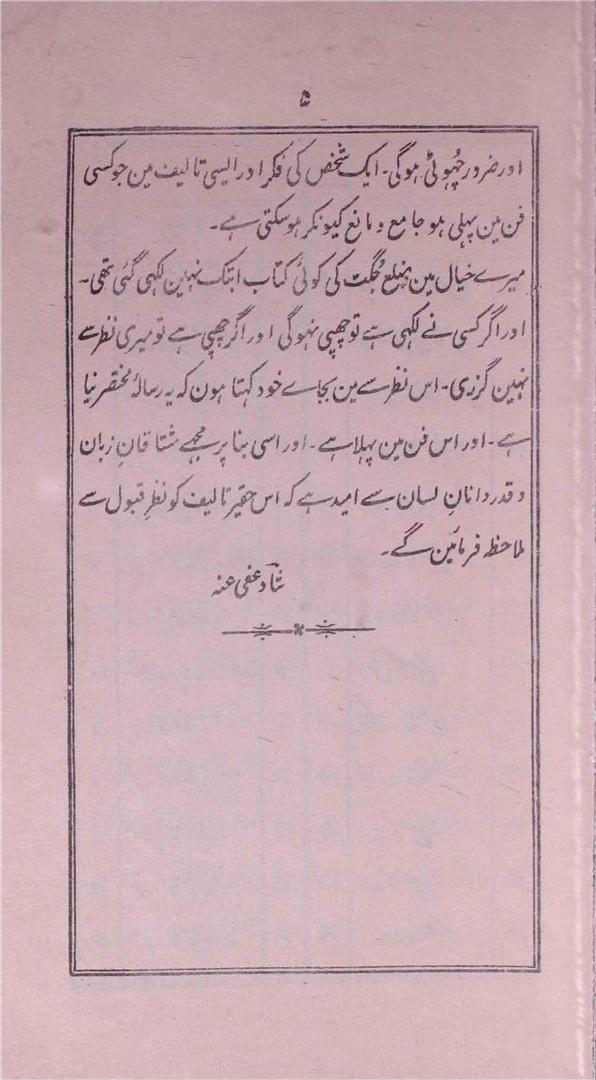 ۵
اور ضرور چُهوٹی ہوگی۔ ایک شخص کی فکر اور ایسی تالیف مین جو کسی
فن مین پہلی ہو جامع و مانع کیونکر ہوسکتی ہے۔
میرے خیال مین ضلع جُگت کی کوئی کتاب ابتک نہین لکہی گئی تھی۔
اور اگر کسی نے لکہی ہے تو چھپی نہوگی اور اگر چھپی ہے تو میری نظر سے
نہین گزری۔ اس نظر سے مین بجاے خود کہتا ہون کہ یہ رسالۂ مختصر نیا
ہے۔ اور اس فن مین پہلا ہے۔ اور اسی بنا پر مجہے مشتاقانِ زبان
و قدردانانِ لسان سے امید ہے کہ اس حقیر تالیف کو نظرِ قبول سے
ملاحظہ فرمائین گے۔
شاد عفی عنہ